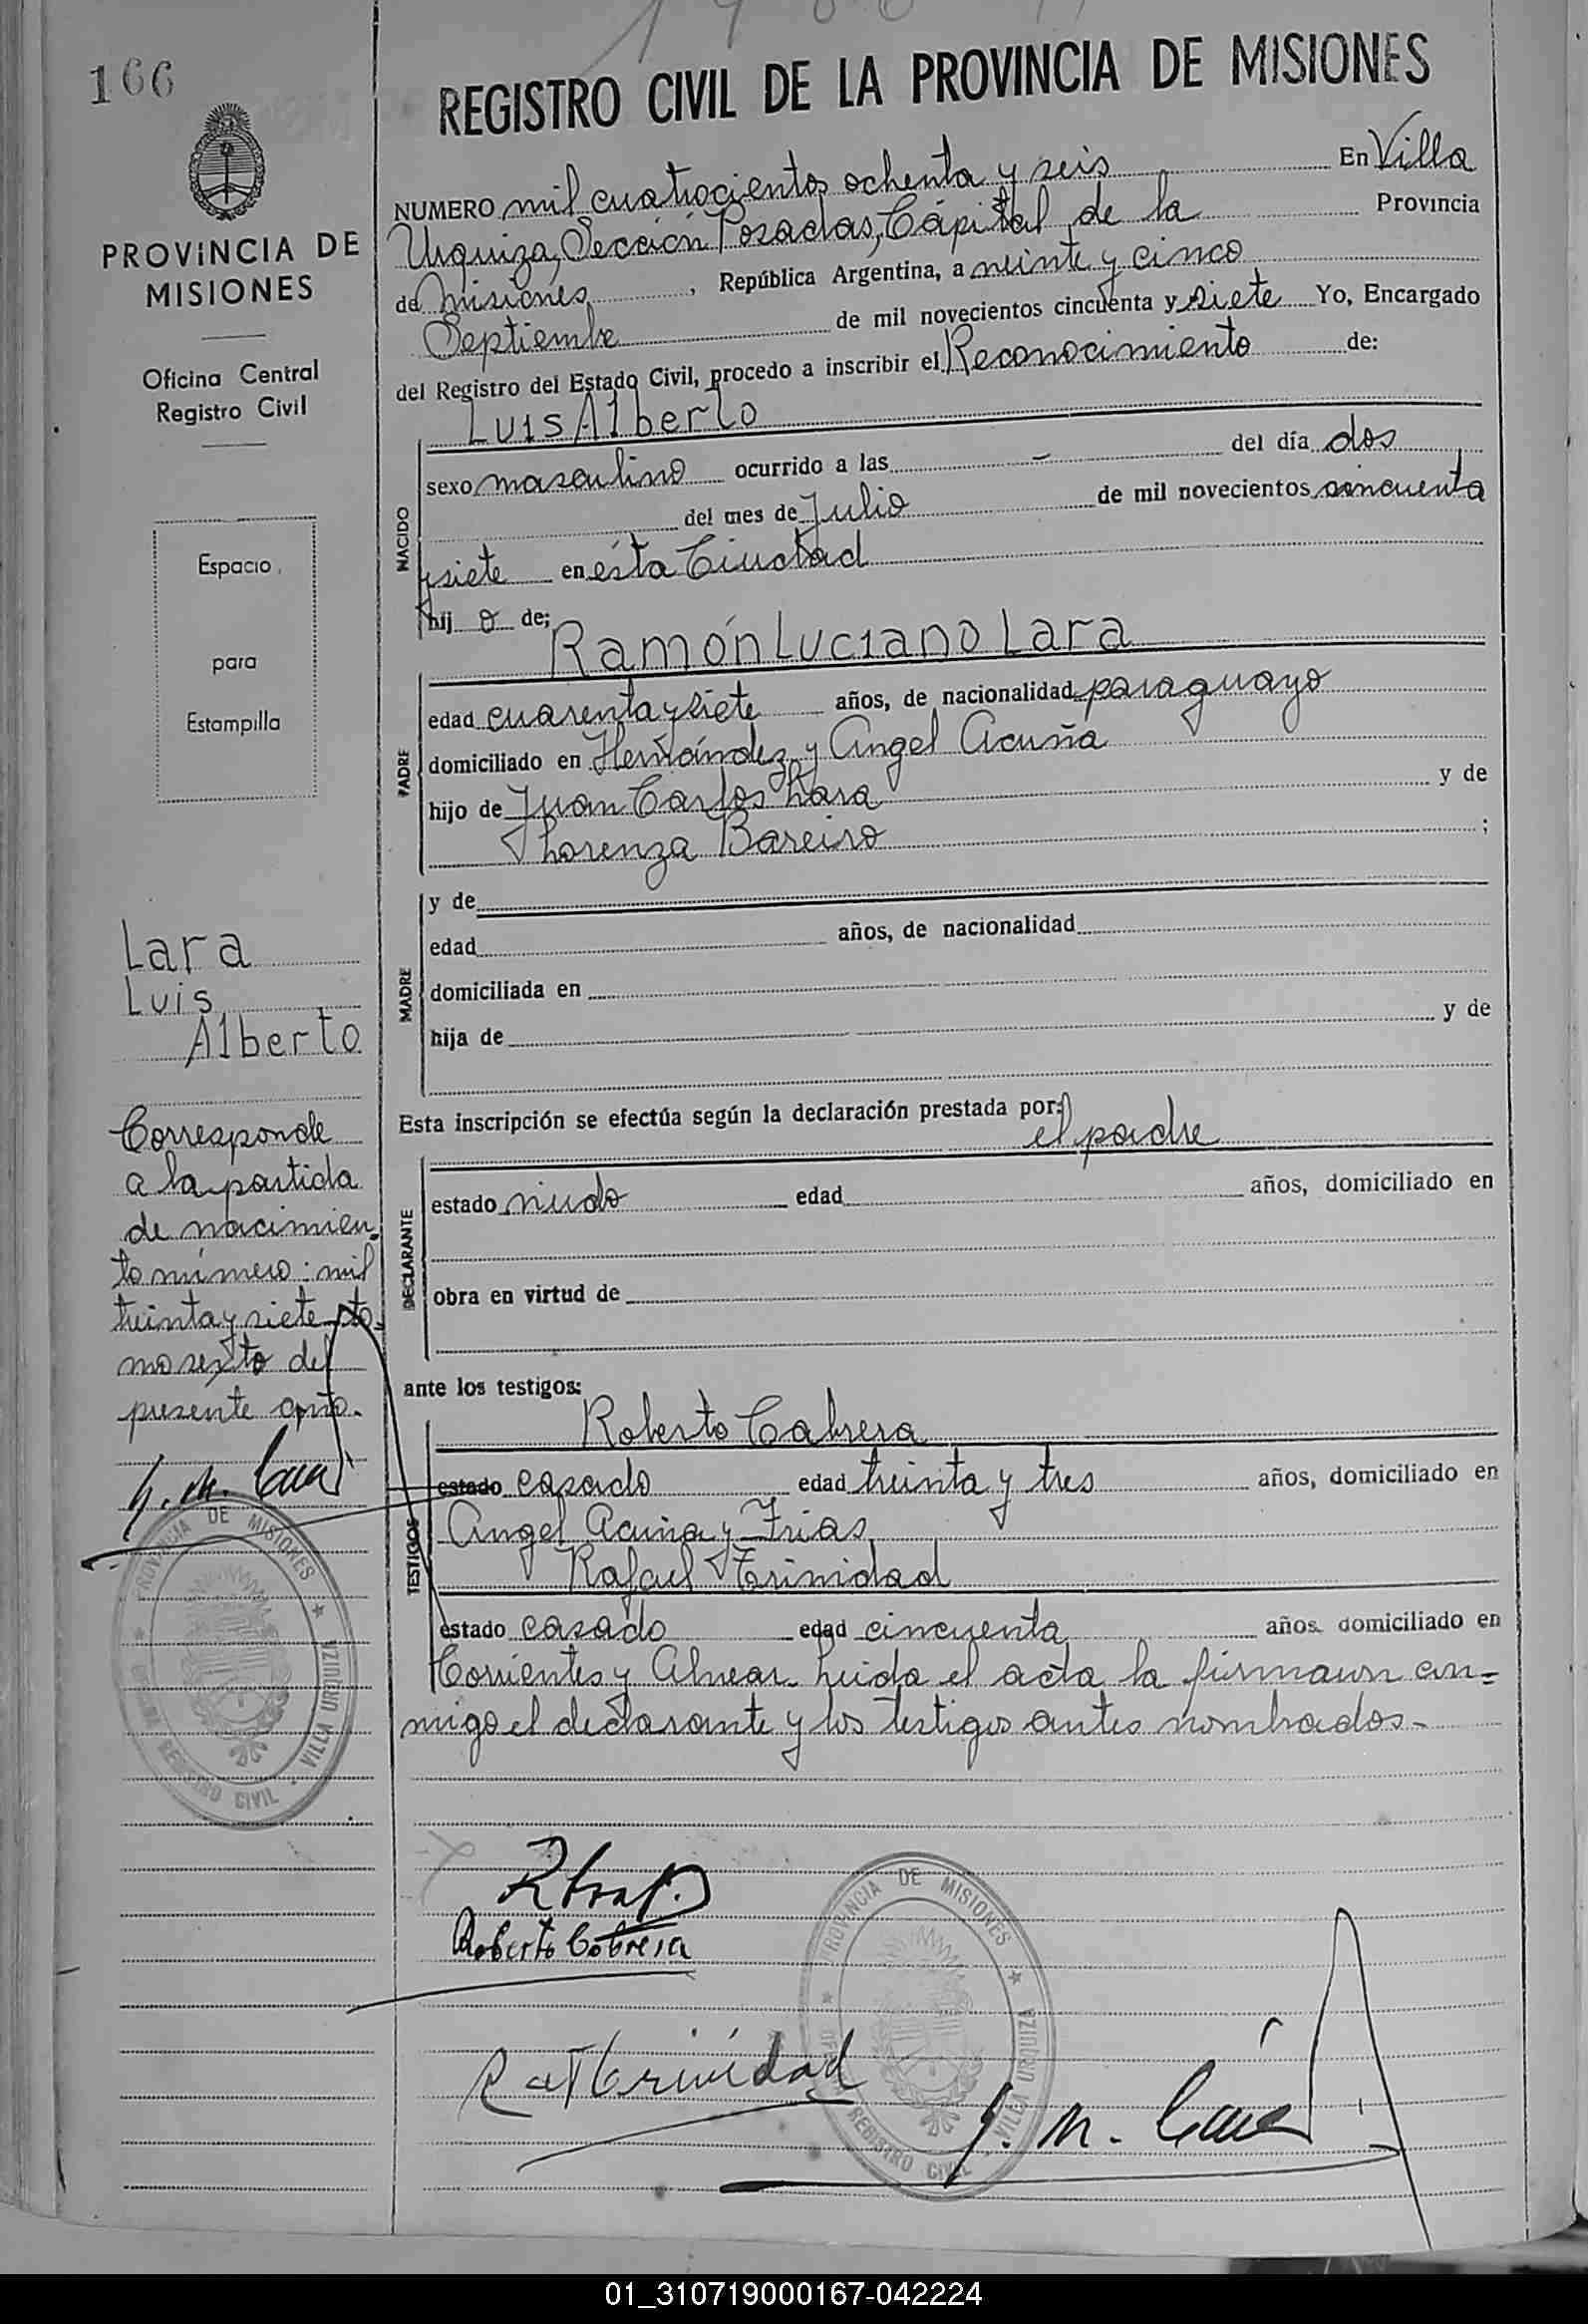 166
REGISTRO CIVIL DE LA PROVINCIA DE MISIONES
PROVINCIA DE
MISIONES
Oficina Central
Registro Civil
Espacio
para
Estampilla
NUMERO mil cuatrocientos ochenta y seis En Villa
Urquiza, Sección Posadas, Cápital de la Provincia
de Misiones, República Argentina, a veinte y cinco
Septiembre de mil novecientos cincuenta y siete Yo, Encargado
del Registro del Estado Civil, procedo a inscribir el Reconocimiento de:
Luis Alberto
NACIDO
sexo masculino ocurrido a las - del día dos
del mes de Julio de mil novecientos cincuenta
y siete en ésta Ciudad
hijo de:
Ramón Luciano Lara
PADRE
edad cuarenta y siete años, de nacionalidad paraguayo
domiciliado en Hernández y Angel Acuña
hijo de Juan Carlos Lara y de
Lorenza Bareiro ;
MADRE
y de
edad años, de nacionalidad
domiciliada en
hija de y de
Esta inscripción se efectúa según la declaración prestada por:
el padre
DECLARANTE
estado viudo edad años, domiciliado en
obra en virtud de
ante los testigos:
Roberto Cabrera
TESTIGOS
estado casado edad treinta y tres años, domiciliado en
Angel Acuña y Frias
Rafael Trinidad
estado casado edad cincuenta años. domiciliado en
Corrientes y Alvear. Leida el acta la firmaron con=
migo el declarante y los testigos antes nombrados.-
Lara
Luis
Alberto
Corresponde
a la partida
de nacimien
to número: mil
treinta y siete to-
mo sexto del
presente año.
PROVINCIA DE MISIONES
VILLA URQUIZA
REGISTRO CIVIL
Roberto Cabrera
Raf Trinidad
PROVINCIA DE MISIONES
VILLA URQUIZA
REGISTRO CIVIL
01_310719000167-042224